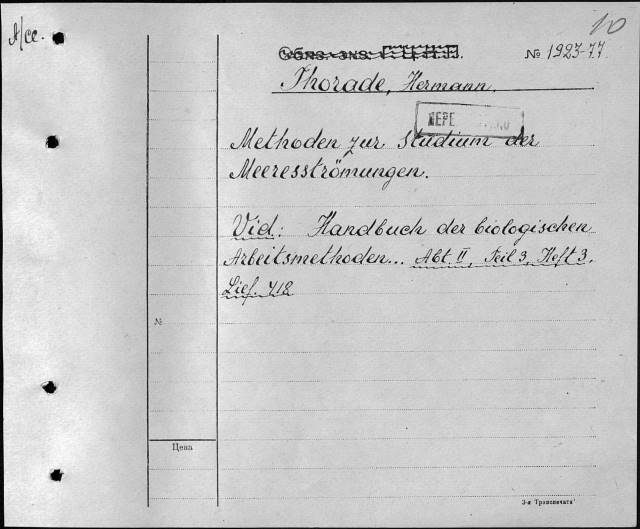 A/cc.
10
№ 1923-77
Thorade, Hermann.
Methoden zur Studium der
Meeresströmungen.
Vid: Handbuch der biologischen
Arbeitsmethoden... Abt. II, Teil 3, Heft 3,
Lief. 718
№
Цена
3-я Транспечать